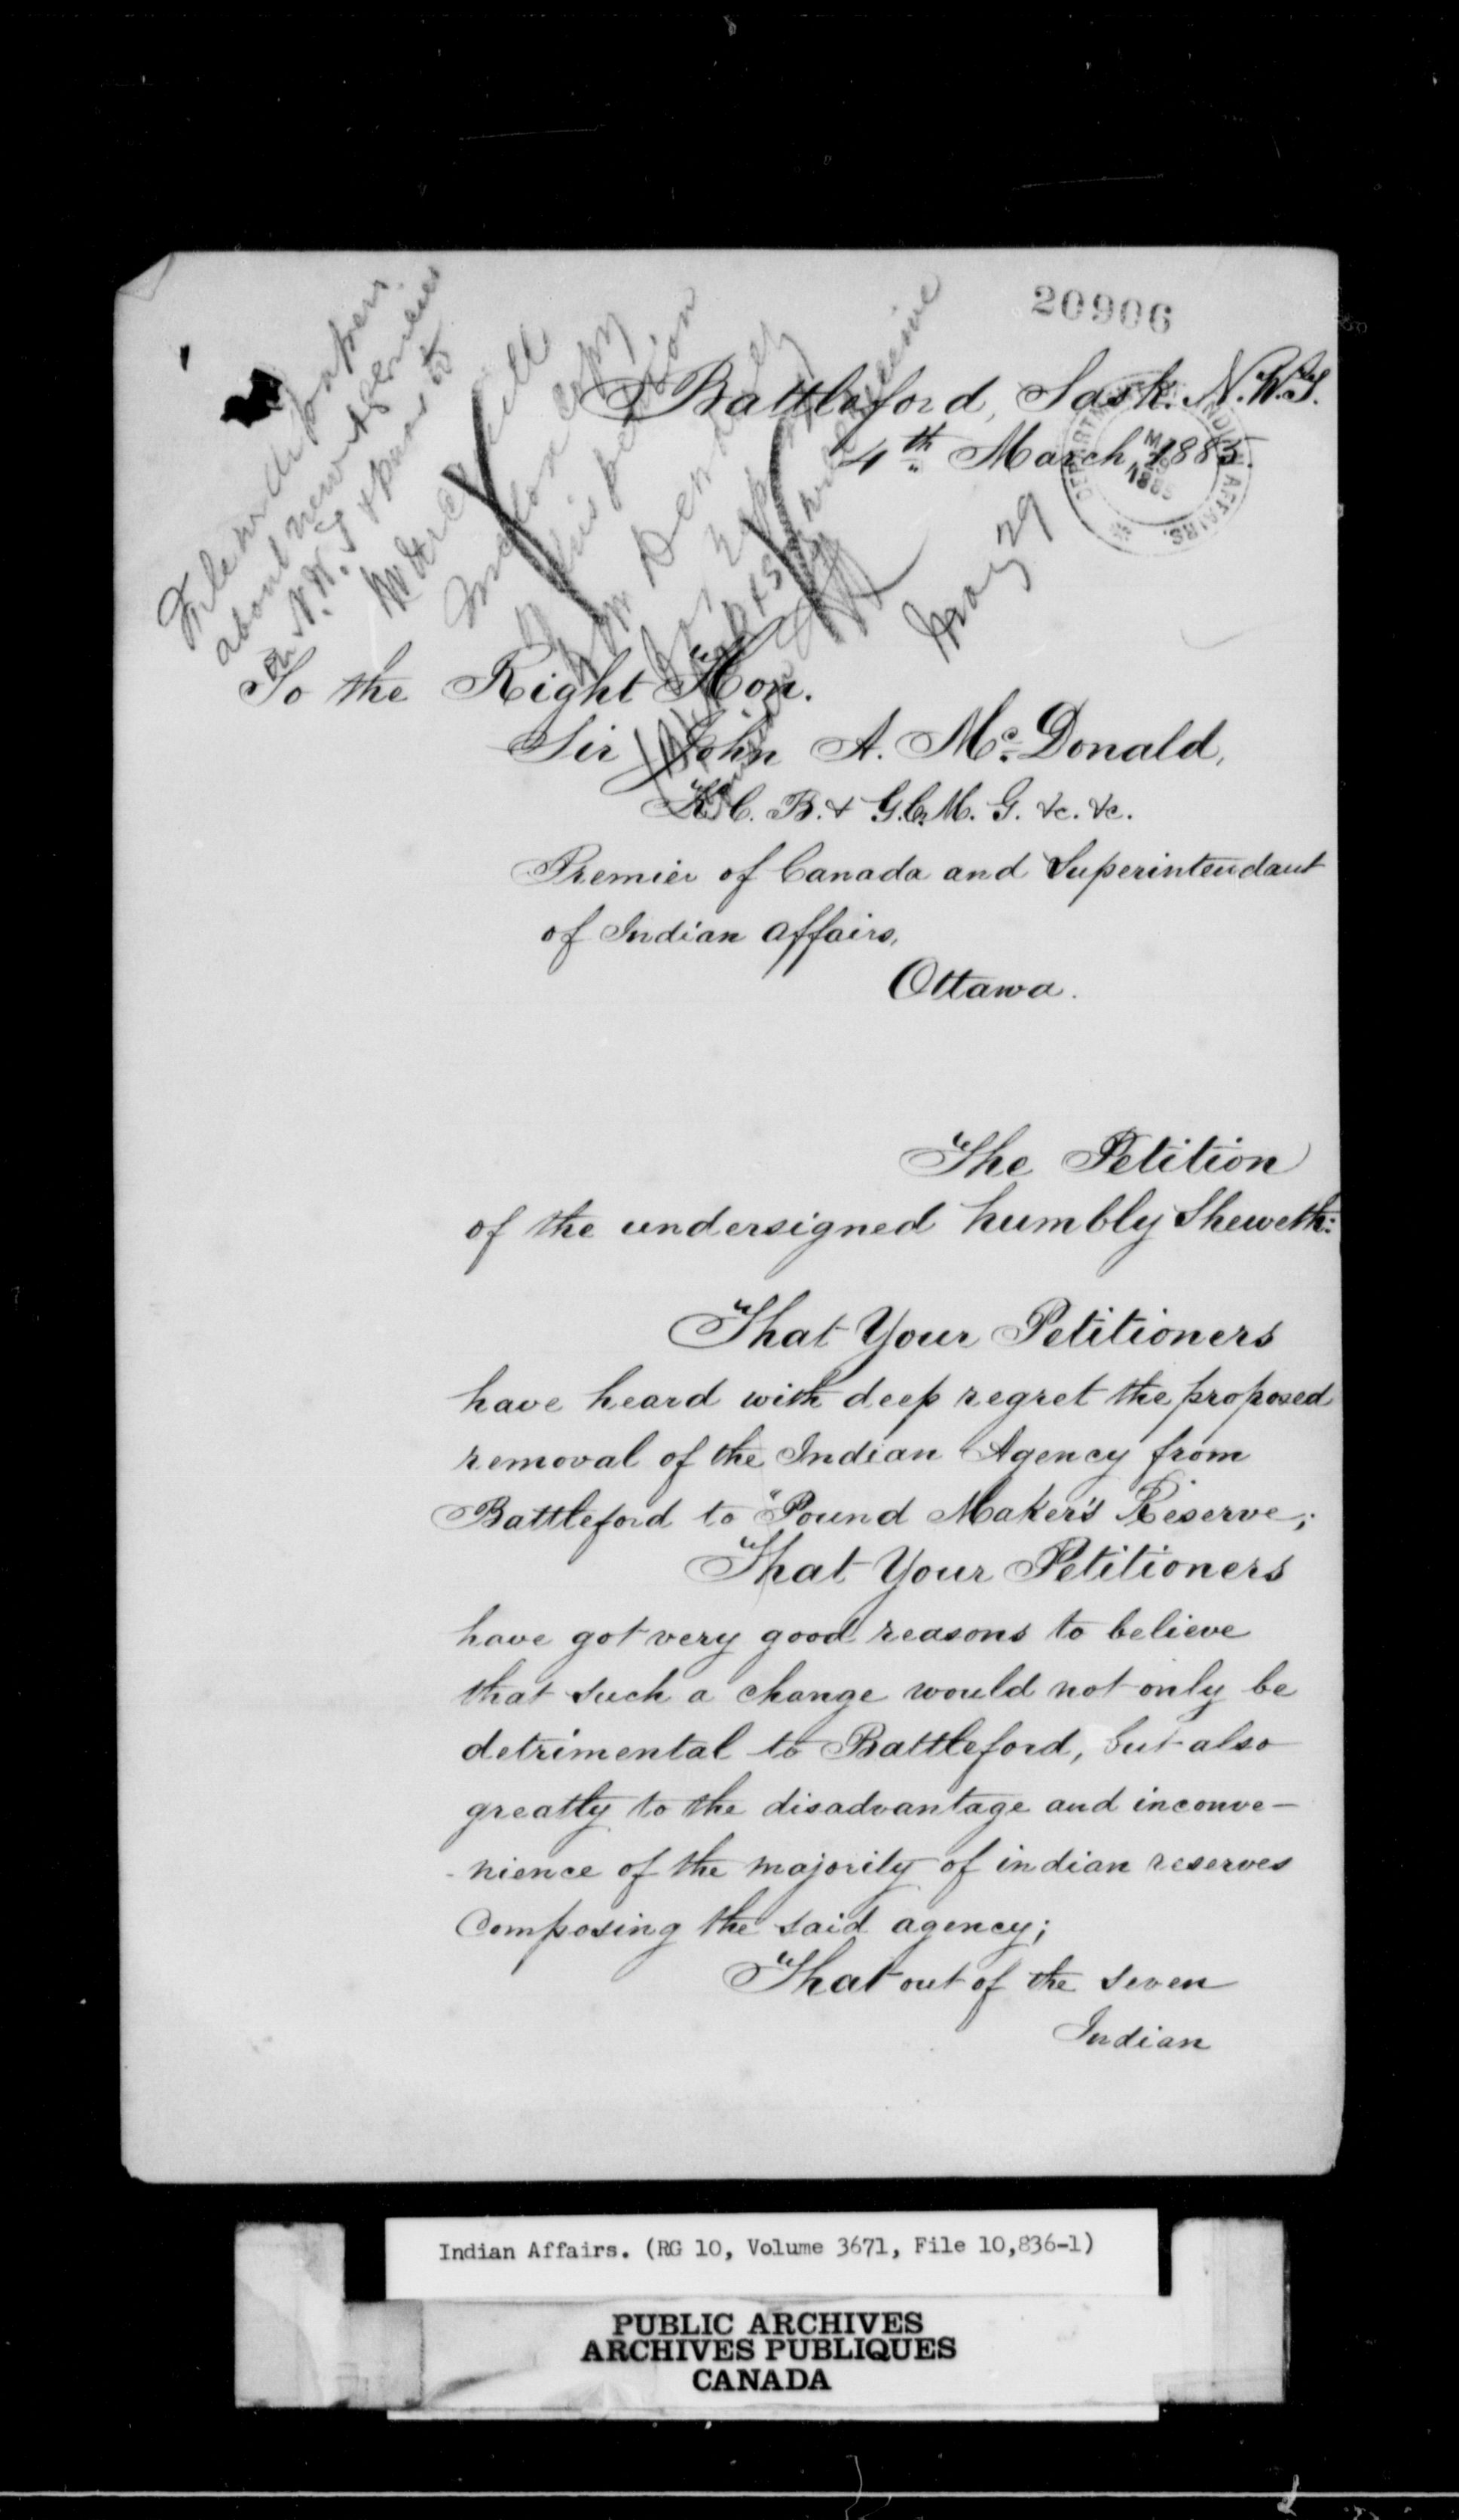 20906
File with papers
about new Agencies
in N.W.T. & pass to
Mr
this petition
Mar 29
Battleford, Sask. N.W.T.
4th March, 1885.
DEPARTMENT OF INDIAN AFFAIRS.
1885
To the Right Hon.
Sir John A. McDonald,
K.C.B. & G.C.M.G. &c. &c.
Premier of Canada and Superintendant
of Indian Affairs,
Ottawa.
The Petition
of the undersigned humbly Sheweth:
That Your Petitioners
have heard with deep regret the proposed
removal of the Indian Agency from
Battleford to "Pound Maker's Reserve;
That Your Petitioners
have got very good reasons to believe
that such a change would not only be
detrimental to Battleford, but also
greatly to the disadvantage and inconve-
-nience of the majority of indian reserves
Composing the said agency;
That out of the seven
Indian
Indian Affairs. (RG 10, Volume 3671, File 10,836-1)
PUBLIC ARCHIVES
ARCHIVES PUBLIQUES
CANADA